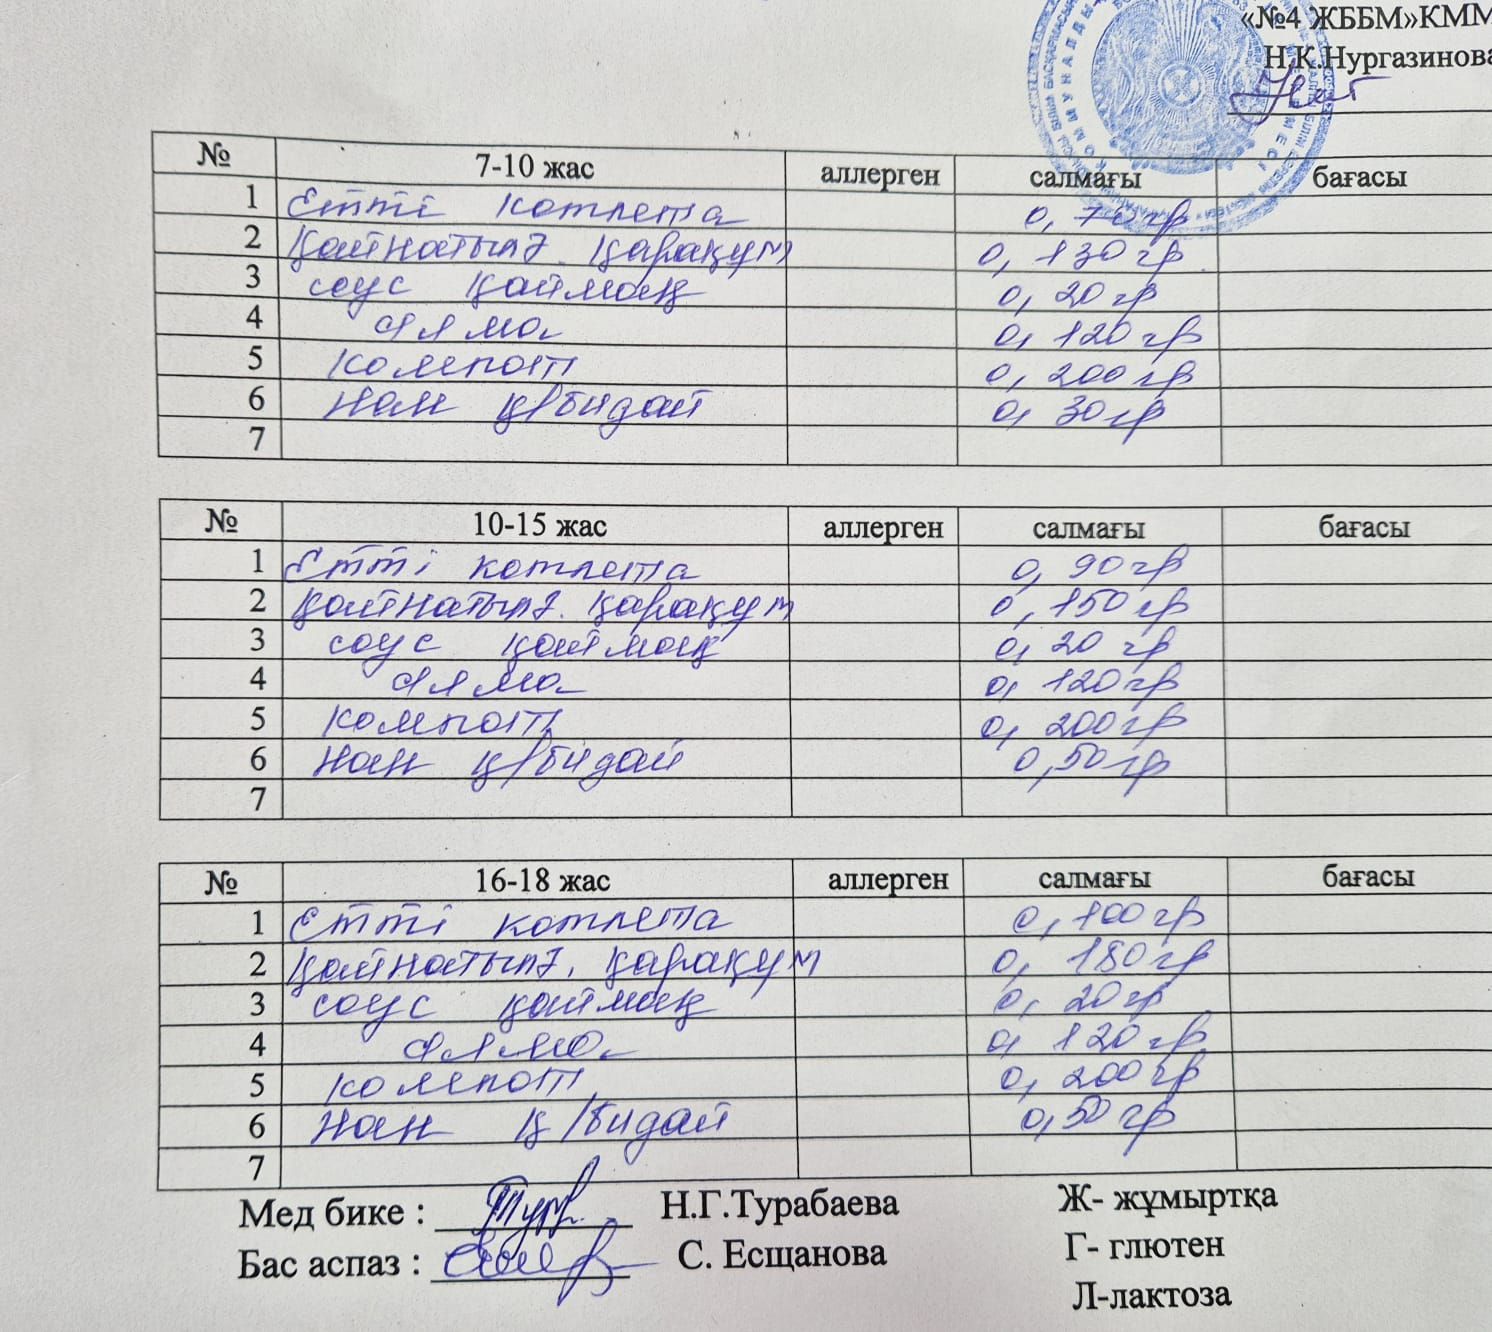 «№4 ЖББМ»КММ
Н.К.Нургазинова
№ 7-10 жас аллерген салмағы бағасы
1 Етті котлета 0, 70 гр
2 Қайнатылғ. қарақұм 0, 130 гр
3 соус қаймақ 0, 20 гр
4 алма 0, 120 гр
5 компот 0, 200 гр
6 нан қ/бидай 0, 30 гр
7
№ 10-15 жас аллерген салмағы бағасы
1 Етті котлета 0, 90 гр
2 Қайнатылғ. қарақұм 0, 150 гр
3 соус қаймақ 0, 20 гр
4 алма 0, 120 гр
5 компот 0, 200 гр
6 нан қ/бидай 0,50 гр
7
№ 16-18 жас аллерген салмағы бағасы
1 Етті котлета 0, 100 гр
2 Қайнатылғ. қарақұм 0, 180 гр
3 соус қаймақ 0, 20 гр
4 алма 0, 120 гр
5 компот 0, 200 гр
6 Нан қ/бидай 0,50 гр
7
Мед бике : Н.Г.Турабаева Ж- жұмыртқа
Бас аспаз : С. Есщанова Г- глютен
Л-лактоза